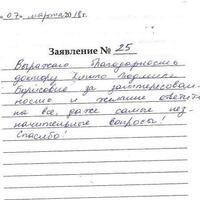 07 марта 2018 г.
Заявление № 25
Выражаю благодарность
доктору
Борисовне за заинтересован-
ность и желание ответить
на все, даже самые нез-
начительные вопросы!
Спасибо!